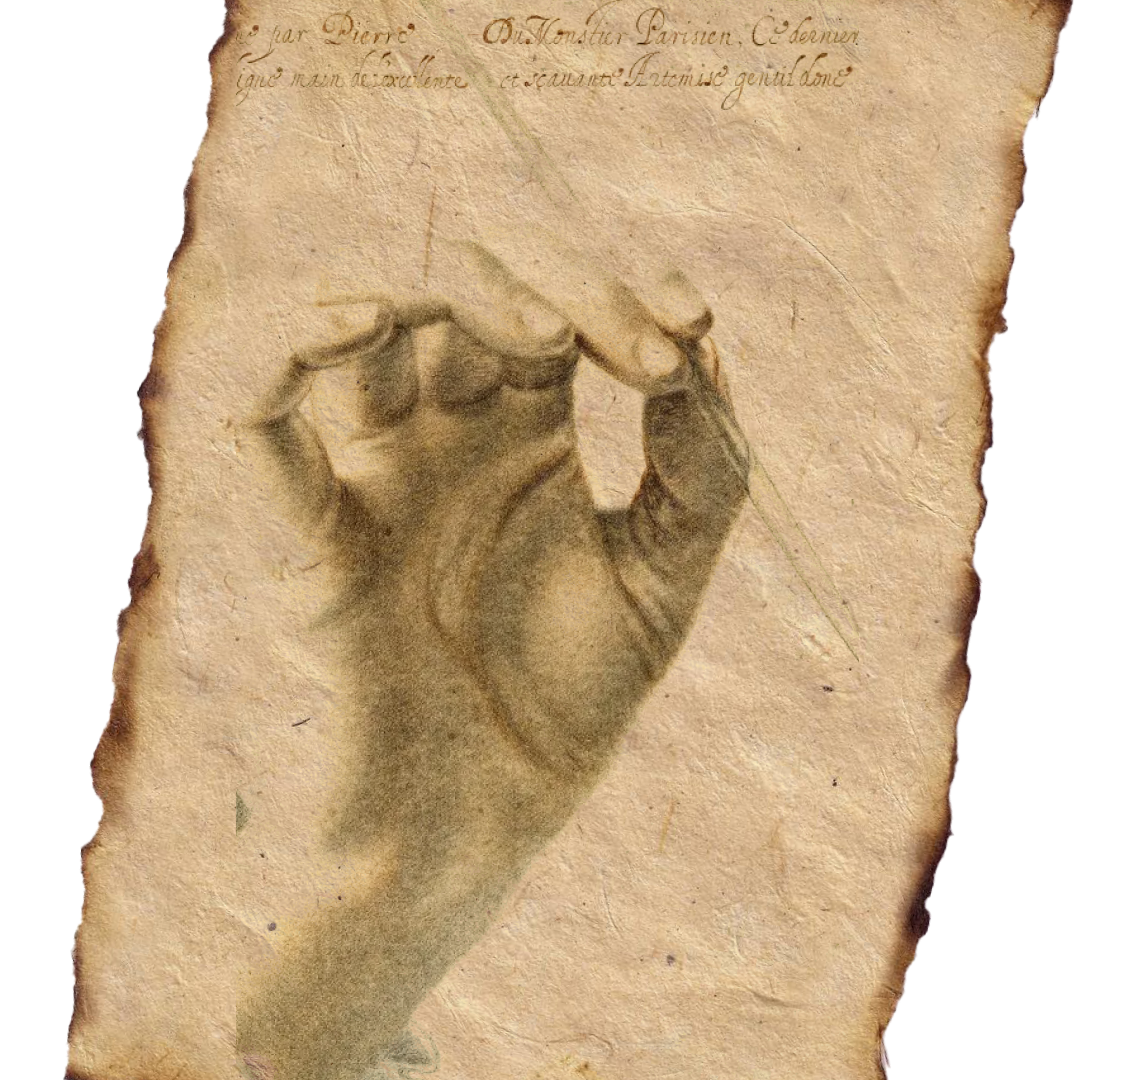 par Pierre Du Monstier Parisien, Ce dernier
main de l'excellente et sçavante Artemise gentil done